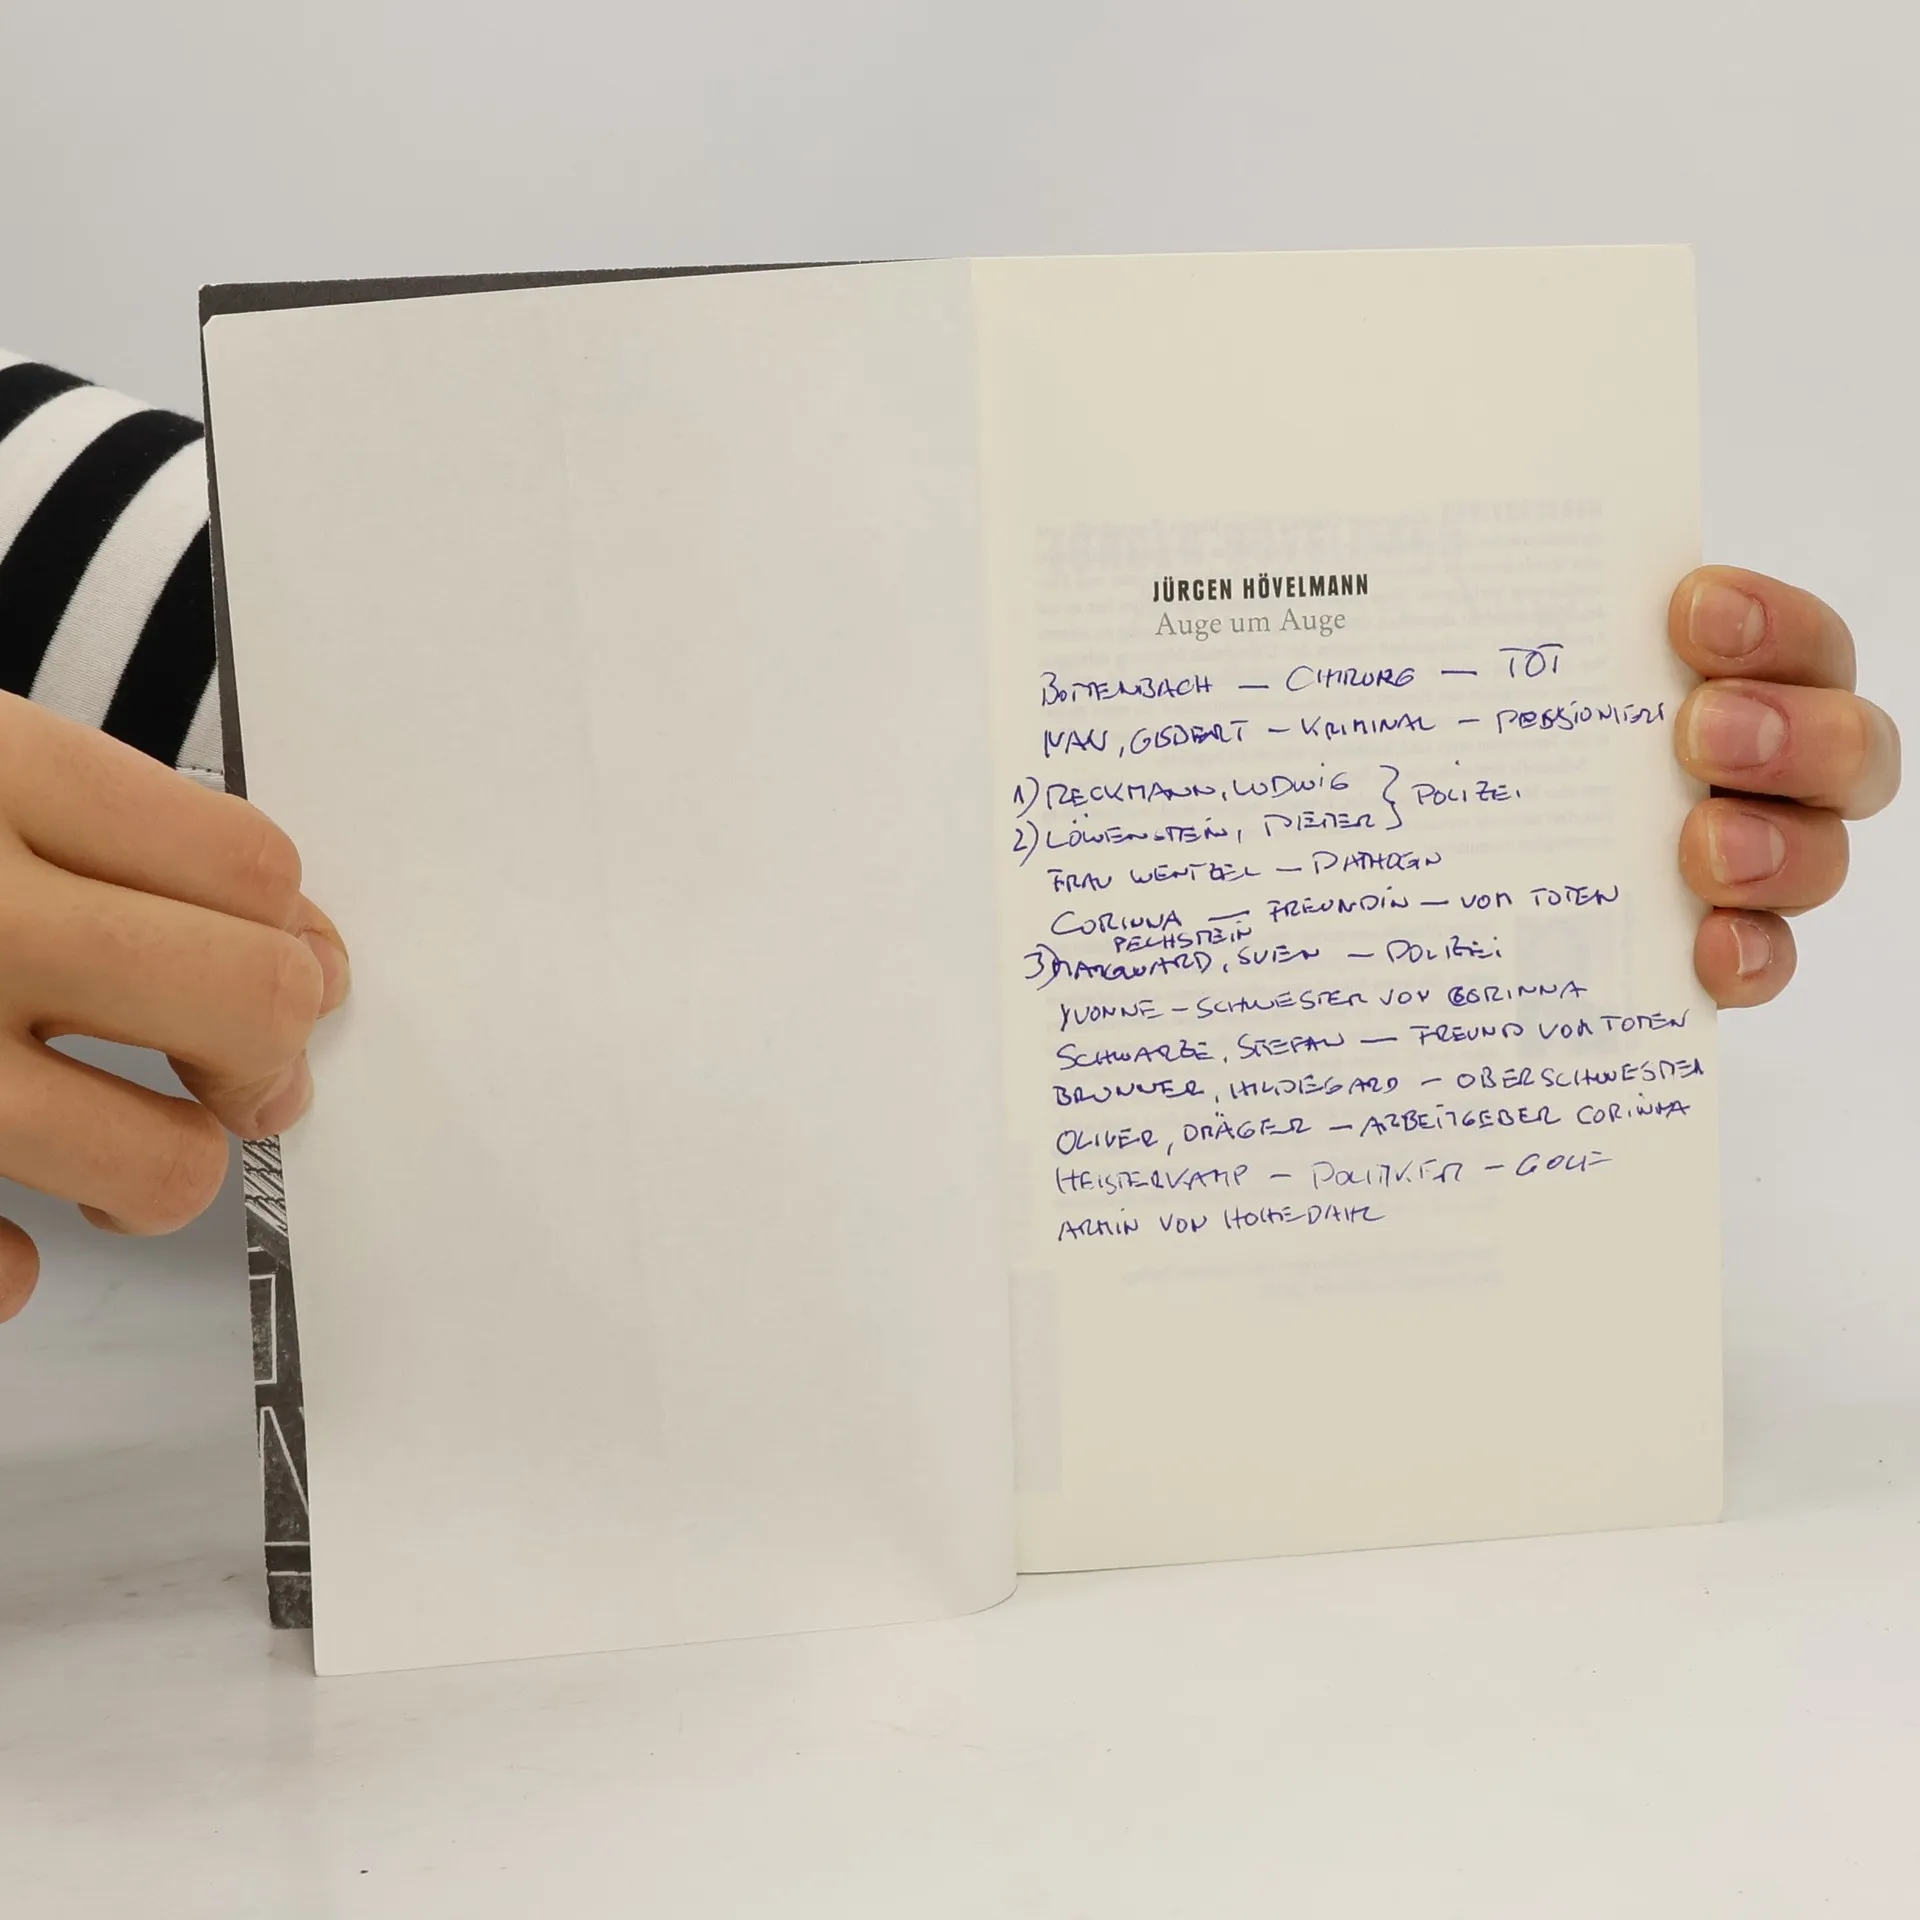 JÜRGEN HÖVELMANN
Auge um Auge
BOTTENBACH — CHIRURG — TOT
NAU, GISBERT — KRIMINAL — PENSIONIERT
1) RECKMANN, LUDWIG } POLIZEI
2) LÖWENSTEIN, PIETER
FRAU WENTZEL — PATHOGIN
CORINNA — FREUNDIN — VOM TOTEN
PECHSTEIN
3) MARQUARD, SVEN — POLIZEI
YVONNE — SCHWESTER VON CORINNA
SCHWARZE, STEFAN — FREUND VOM TOTEN
BRUNNER, HILDEGARD — OBERSCHWESTER
OLIVER, DRÄGER — ARBEITGEBER CORINNA
HEISTERKAMP — POLITIKER — GOLF
ARMIN VON HOHEDAHL